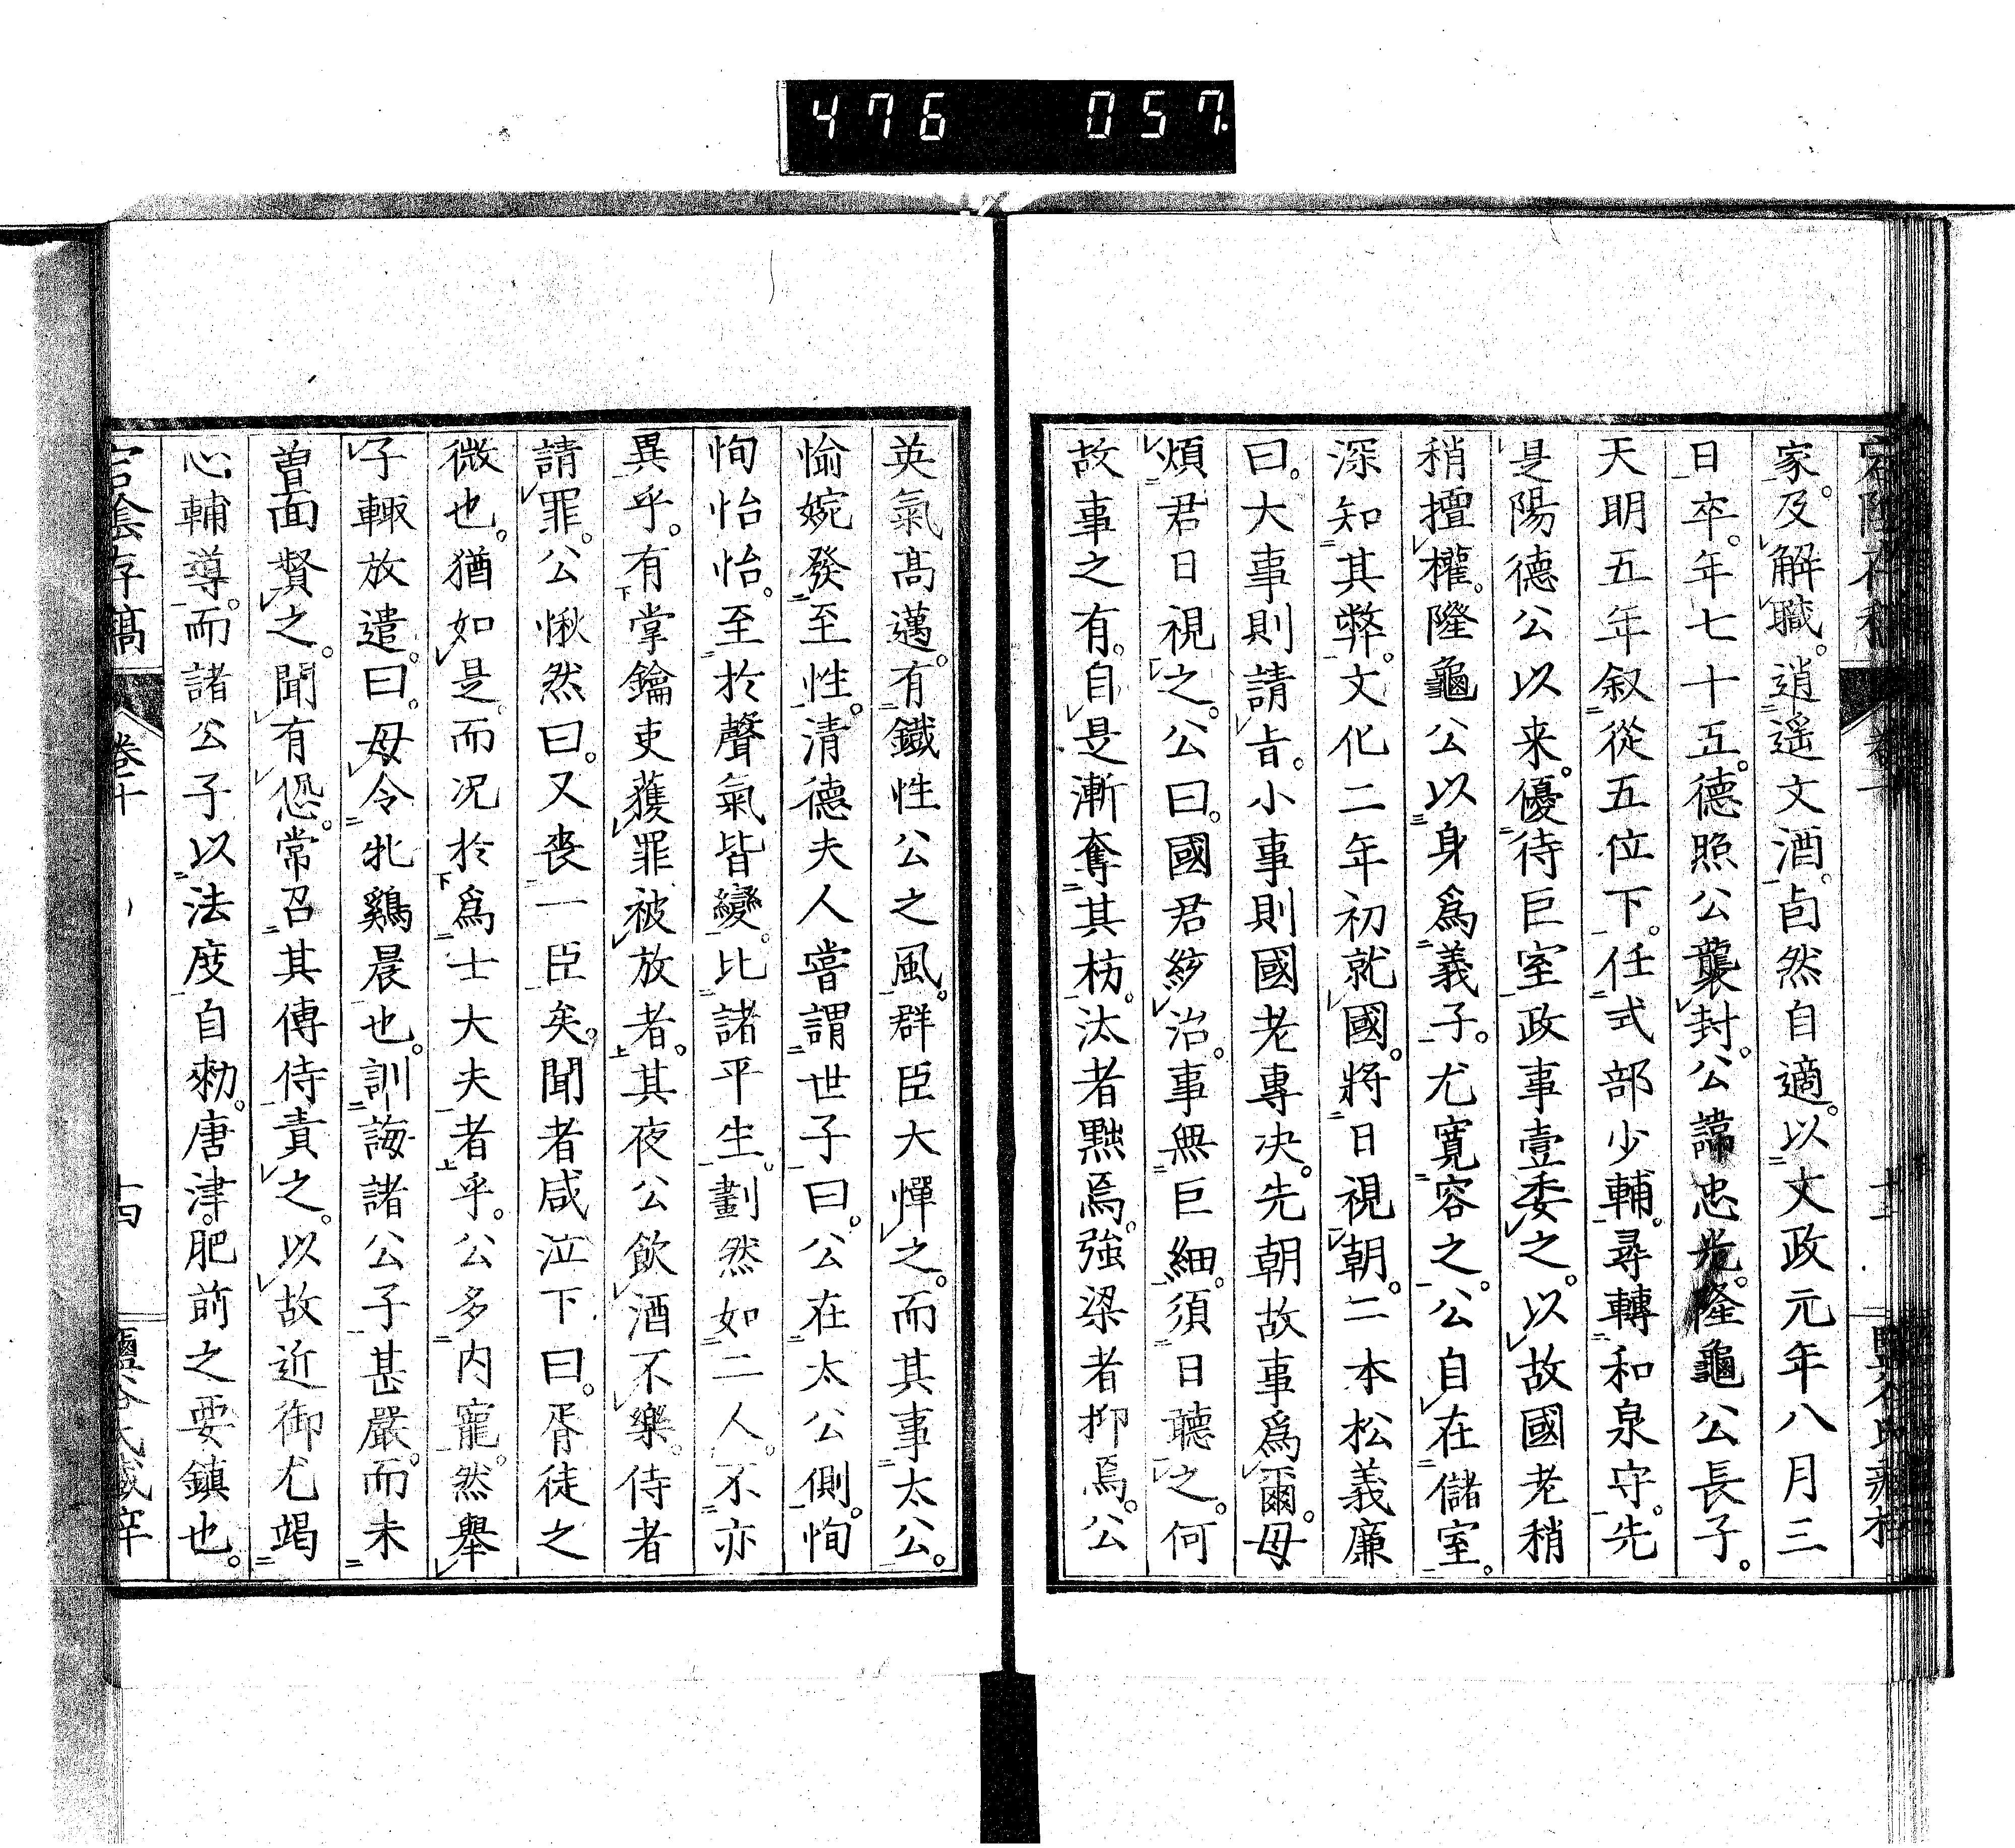 476 057
家。及解職。逍遥文酒。卣然自適。以文政元年八月三
日卒。年七十五。德照公襲封。公諱忠光。隆龜公長子。
天明五年叙從五位下。任式部少輔。尋轉和泉守。先
是陽德公以来。優待巨室政事壹委之。以故國老稍
稍擅權。隆龜公以身爲義子。尤寬容之。公自在儲室。
深知其弊。文化二年初就國。將日視朝。二本松義廉
曰。大事則請旨。小事則國老專决。先朝故事爲爾。毋
煩君日視之。公曰。國君紾治。事無巨細。須日聽之。何
故事之有。自是漸奪其枋。汰者黜焉。強梁者抑焉。公
英氣髙邁。有鐵性公之風。群臣大憚之。而其事太公。
愉婉發至性。清德夫人嘗謂世子曰。公在太公側。恂
恂怡怡。至於聲氣皆變。比諸平生。劃然如二人。不亦
異乎。有掌鑰吏獲罪被放者。其夜公飮酒不樂。侍者
請罪。公愀然曰。又喪一臣矣。聞者咸泣下曰。胥徒之
微也。猶如是。而况於爲士大夫者乎。公多内寵。然舉
子輙放遣。曰。毋令牝鷄晨也。訓誨諸公子甚嚴。而未
曽面贅之。聞有愆。常召其傅侍責之。以故近御尤竭
心輔導。而諸公子以法度自勑。唐津。肥前之要鎮也。
宕陰存稿 卷十 十四